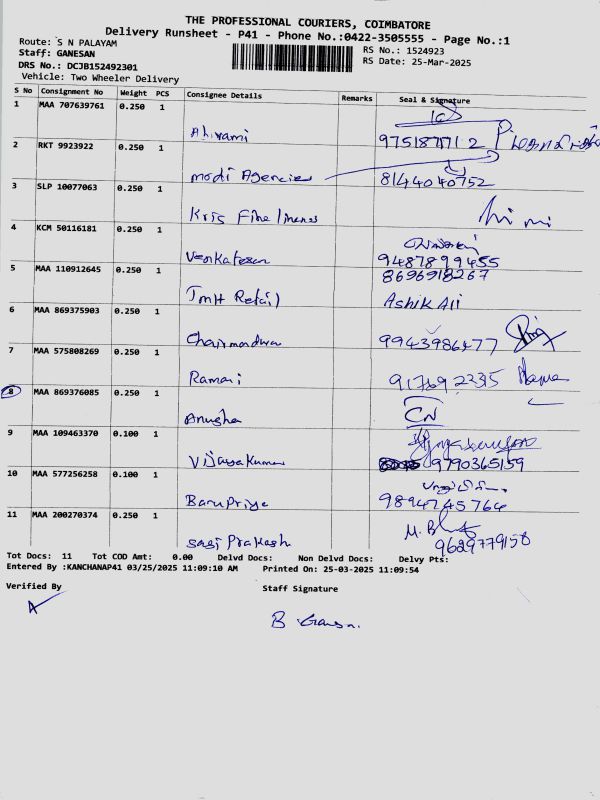 THE PROFESSIONAL COURIERS, COIMBATORE
Delivery Runsheet - P41 - Phone No.:0422-3505555 - Page No.:1
Route: S N PALAYAM
Staff: GANESAN
DRS No.: DCJB152492301
Vehicle: Two Wheeler Delivery
RS No.: 1524923
RS Date: 25-Mar-2025
S No Consignment No Weight PCS Consignee Details Remarks Seal & Signature
1 MAA 707639761 0.250 1
2 RKT 9923922 0.250 1
modi Agencies 8144040752
3 SLP 10077063 0.250 1
Kris
4 KCM 50116181 0.250 1
Venkatesan 9487899455
8696918267
5 MAA 110912645 0.250 1
Retail Ashik Ali
6 MAA 869375903 0.250 1
9943986477
7 MAA 575808269 0.250 1
Ramani
8 MAA 869376085 0.250 1
Anusha CN
9 MAA 109463370 0.100 1
Vijayakumar 9790365159
10 MAA 577256258 0.100 1
BanuPriya 9894745764
11 MAA 200270374 0.250 1
Sasi Prakash 9629779158
Tot Docs: 11 Tot COD Amt: 0.00 Delvd Docs: Non Delvd Docs: Delvy Pts:
Entered By :KANCHANAP41 03/25/2025 11:09:10 AM Printed On: 25-03-2025 11:09:54
Verified By Staff Signature